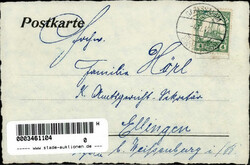 Postkarte
Familie Hörl
K. Amtsgericht-Sekretär
Ellingen
b/ Weißenburg i/B
0003461104
0
www.slade-auktionen.de